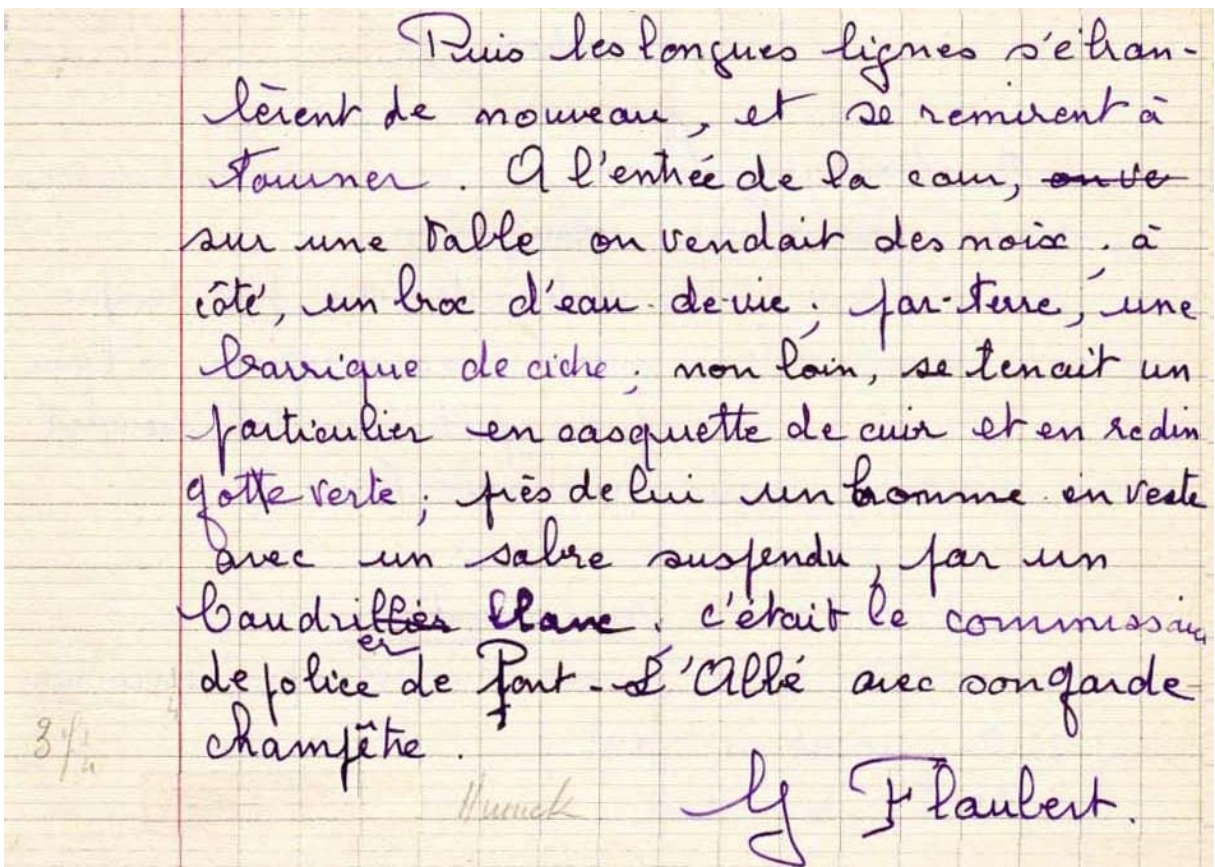 Puis les longues lignes s'ébran-
lèrent de nouveau, et se remirent à
tourner. A l'entrée de la cour, on ve
sur une table on vendait des noix. à
côté, un broc d'eau-de-vie; par-terre, une
barrique de cidre; non loin, se tenait un
particulier en casquette de cuir et en redin
gotte verte; près de lui un homme en veste
avec un sabre suspendu, par un
baudrillier blanc; c'était le commissaire
de police de Pont-L'Abbé avec son garde
champêtre.
G Flaubert.